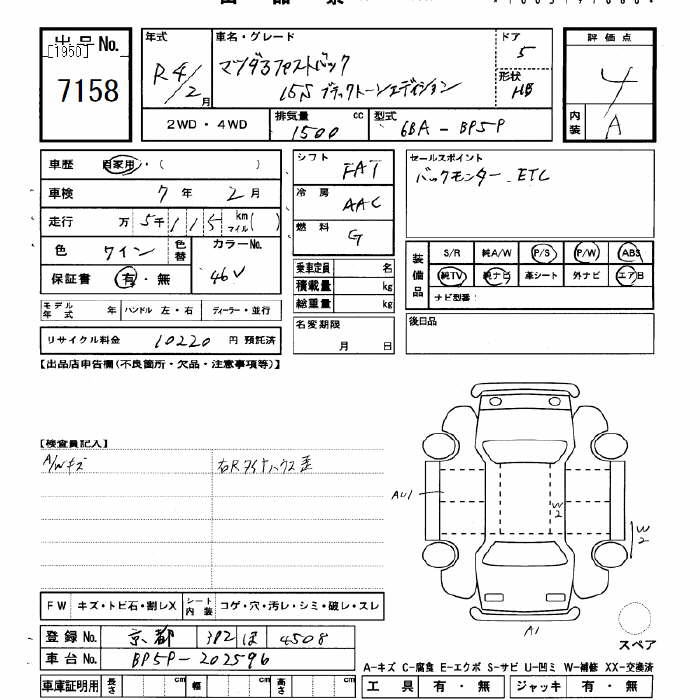 出品No. 年式 車名・グレード ドア 評価点
[1950]
7158 R4/2月 マツダ3ファストバック 5 4
15S ブラックトーンエディション 形状 HB
2WD・4WD 排気量 1500 cc 型式 6BA-BP5P 内装 A
車歴 自家用・( ) シフト FAT セールスポイント
車検 7年 2月 冷房 AAC バックモニター.ETC
走行 万5千115km マイル( ) 燃料 G
色 ワイン 色替 カラーNo. 46V
保証書 有・無
乗車定員 名
積載量 kg
総重量 kg
装備品 S/R 純A/W P/S P/W ABS
純TV 純ナビ 革シート 外ナビ エアB
ナビ型番:
モデル年式 年 ハンドル 左・右 ディーラー・並行
名変期限 月 日 後日品
リサイクル料金 10220 円 預託済
【出品店申告欄(不良箇所・欠品・注意事項等)】
【検査員記入】
A/Wキズ 右Rタイヤハウス歪
AU1
W2
W2
A1
スペア
FW キズ・トビ石・割レX シート内装 コゲ・穴・汚レ・シミ・破レ・スレ
登録No. 京都 392 ほ 4508
車台No. BP5P-202596
A-キズ C-腐食 E-エクボ S-サビ U-凹ミ W-補修 XX-交換済
車庫証明用 長さ cm 幅 cm 高さ cm 工具 有・無 ジャッキ 有・無